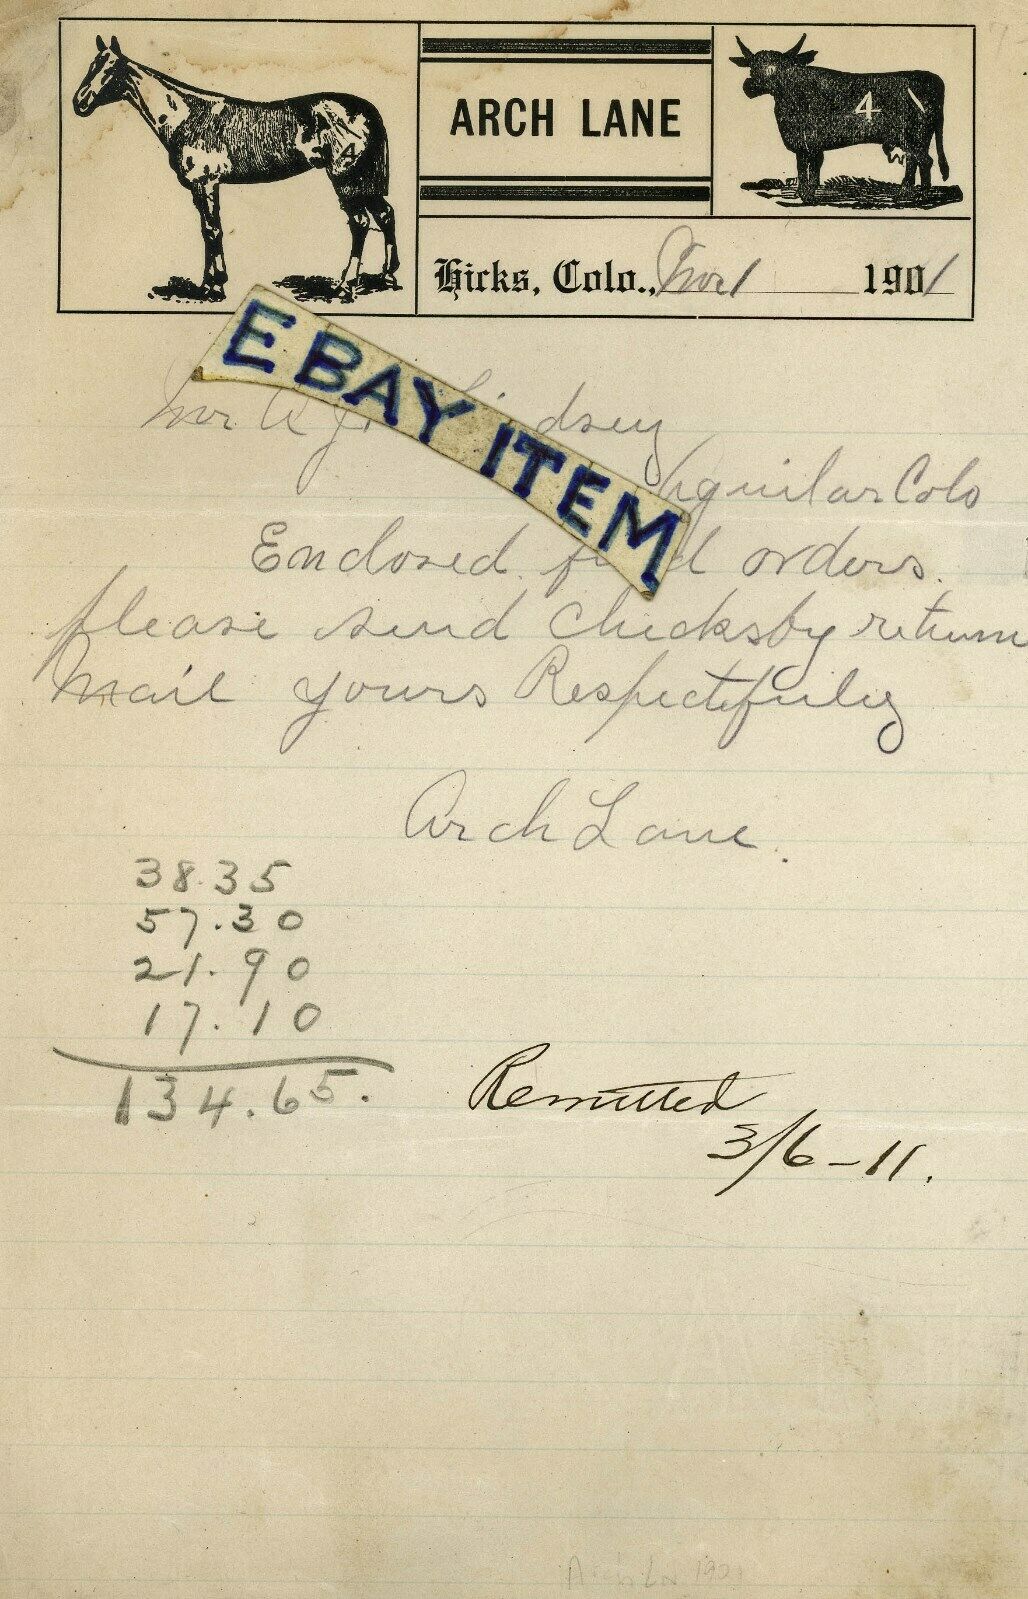 ARCH LANE
4
4
Hicks, Colo., Mar 1 1901
EBAY ITEM
Mr A J. Lindsey
Aguilar Colo
Enclosed find orders.
please send checks by return
Mail yours Respectfuly
Arch Lane.
38.35
57.30
21.90
17.10
134.65.
Remitted
3/6-11.